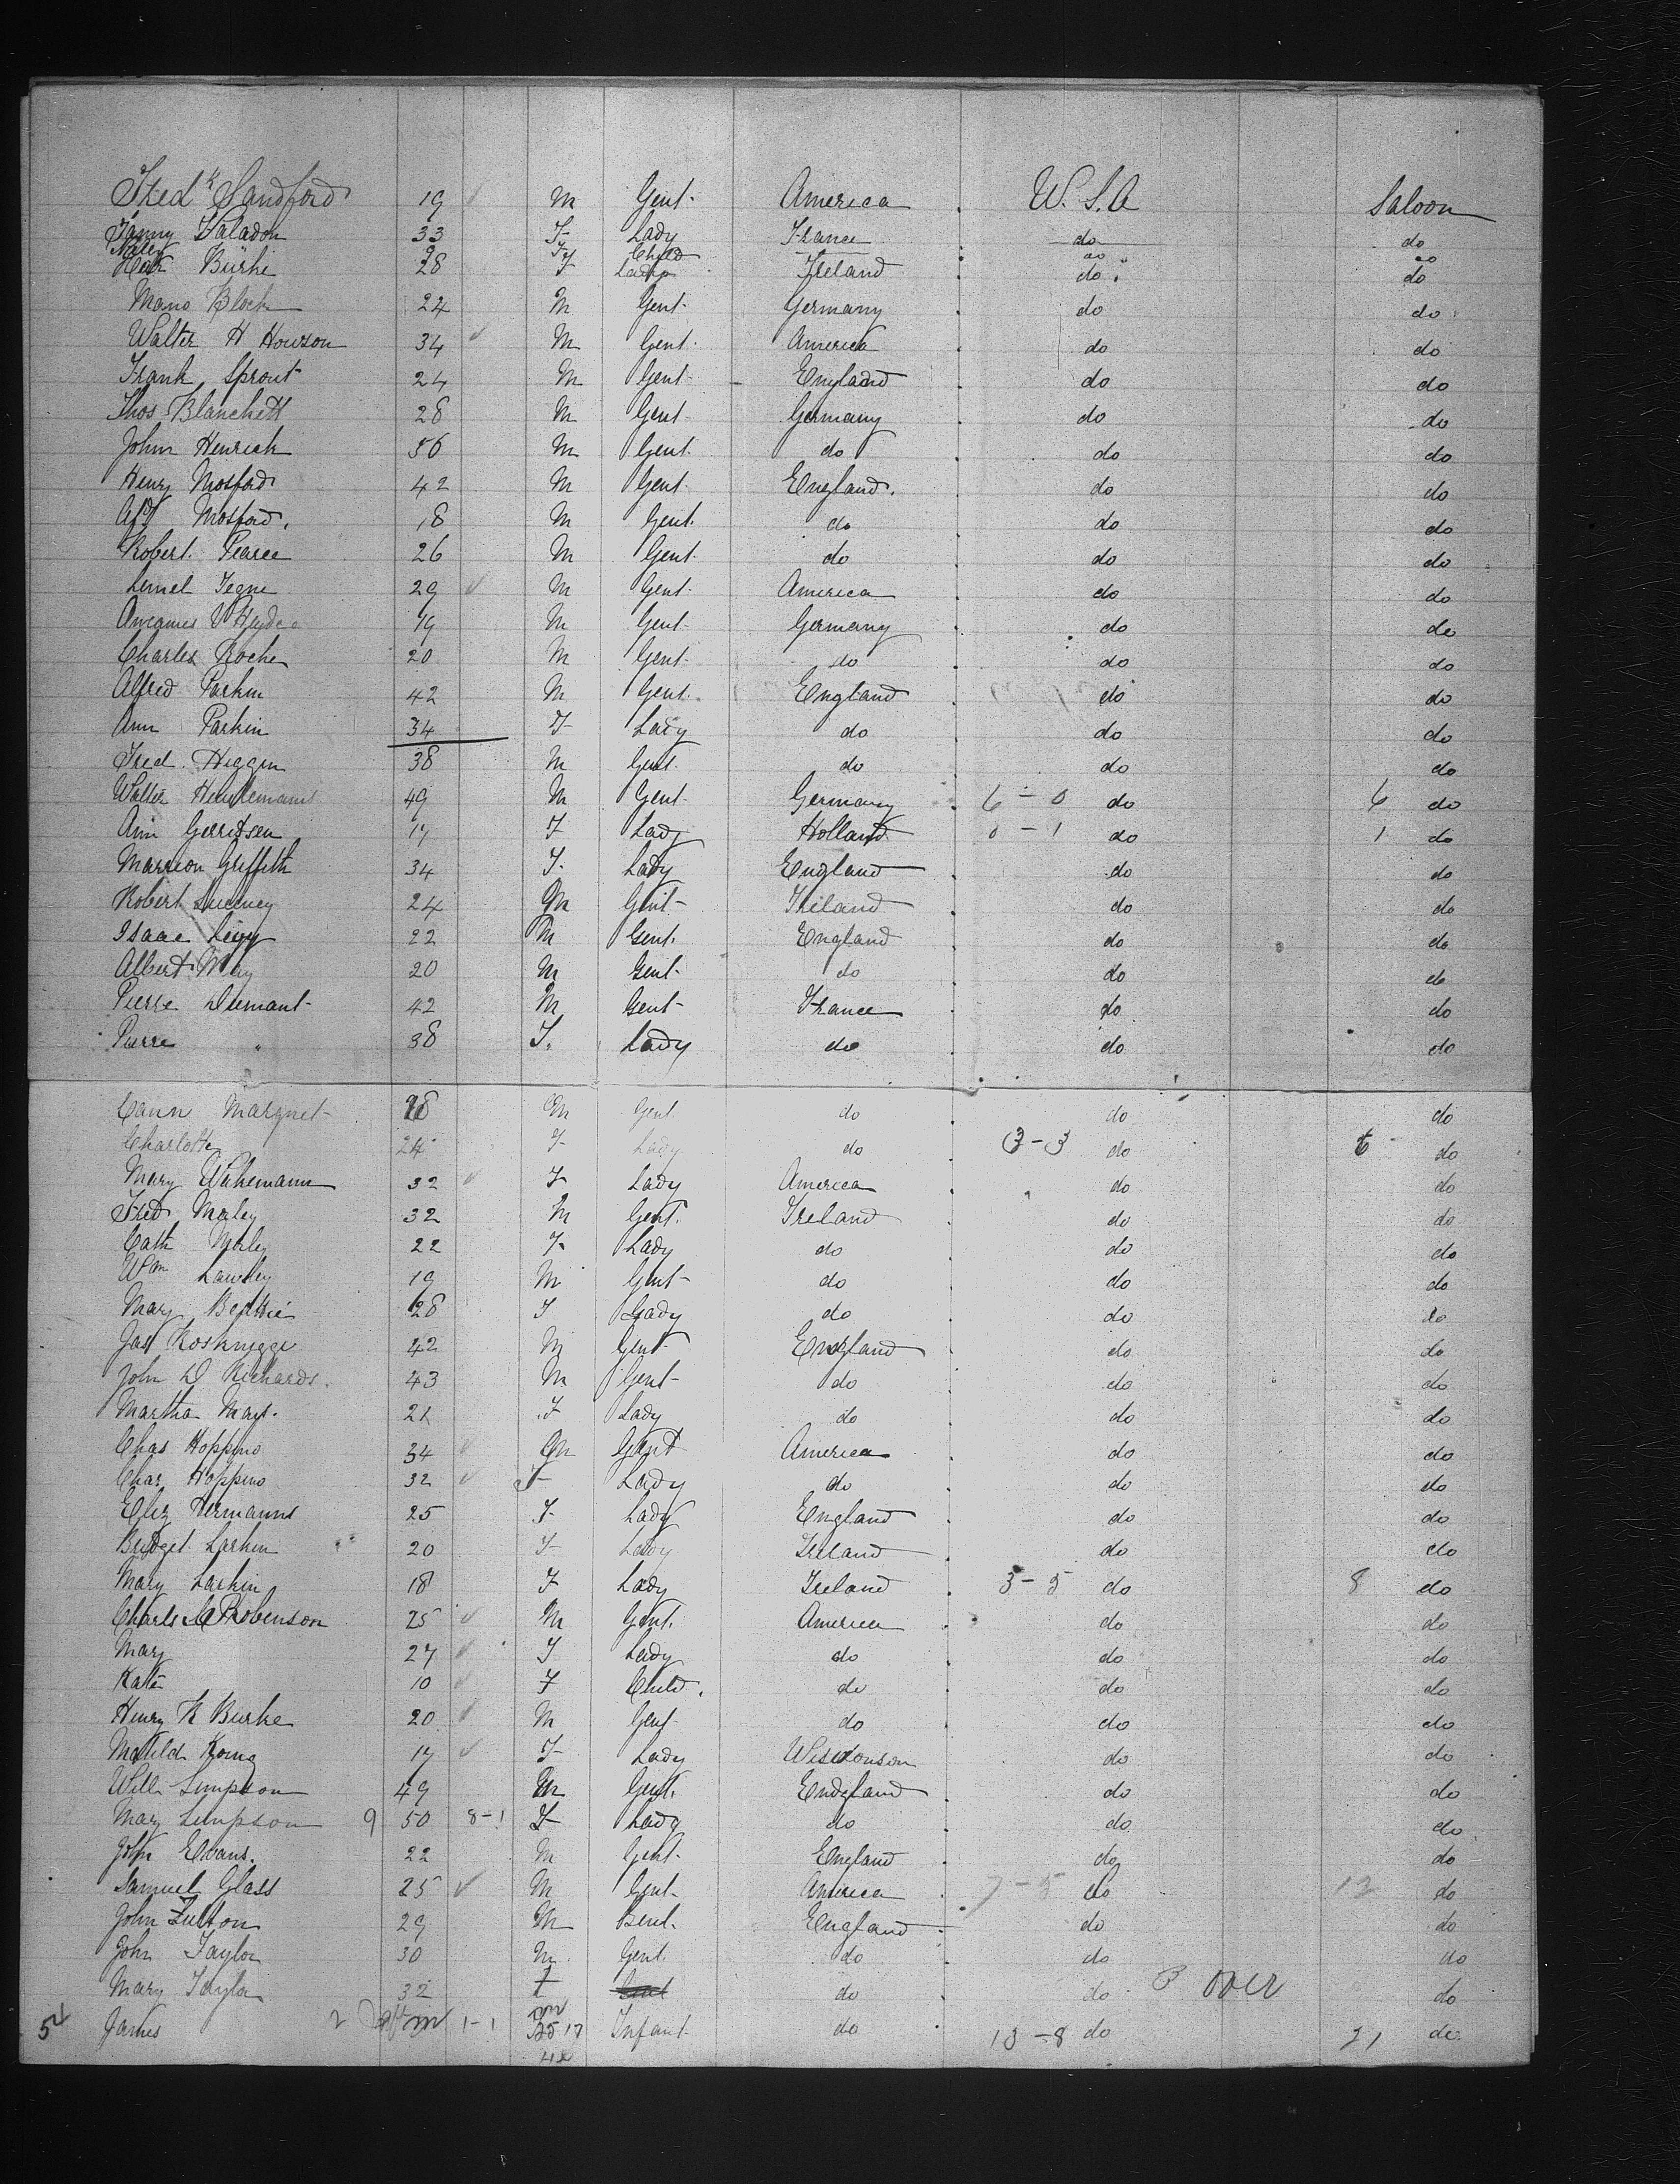 Fredk Sandford 19 M Gent. America U.S.A Saloon
Fanny Saladon 33 F Lady France do do
Nelly 9 F Child do do
Burke 28 F Lady Ireland do do
Mano Block 24 M Gent. Germany do do
Walter H Howson 34 M Gent. America do do
Frank Sprout 24 M Gent. England do do
Thos Blanchett 28 M Gent Germany do do
John Henrich 56 M Gent. do do do
Henry Mosford 42 M Gent England. do do
Mosford. 18 M Gent. do do do
Robert Pearce 26 M Gent do do do
Lemel Tegne 29 M Gent. America do do
19 M Gent. Germany do do
Charles Roche 20 M Gent. do do do
Alfred Parkin 42 M Gent. England do do
Ann Parkin 34 F Lady do do do
Fred. Higgin 38 M Gent. do do do
Walter 49 M Gent. Germany 6-0 do 6 do
Ann Gerritsen 17 F Lady Holland 0-1 do 1 do
Marreon Griffith 34 F. Lady England do do
Robert 24 M Gent Ireland do do
Isaac Levy 22 M Gent. England do do
Albert May 20 M Gent. do do do
Pierre Dumant 42 M Gent France do do
Pierre " 38 F. Lady do do do
Cann Marguet 28 M Gent. do do do
Charlotte 24 F Lady do 3-3 do 6 do
Mary Wakemann 32 F Lady America do do
Fred Maley 32 M Gent. Ireland do do
Cath Maley 22 F. Lady do do do
Wm Lawley 19 M Gent do do do
Mary 28 F Lady do do do
Jas Roskrugge 42 M Gent England do do
John D Richards. 43 M Gent do do do
Martha May. 21 F Lady do do do
Chas Hoppino 34 M Gent America do do
Char. Hoppino 32 F Lady do do do
Eliz Hermanns 25 F Lady England do do
Bridget Larkin 20 F Lady Ireland do do
Mary Larkin 18 F Lady Ireland 3-5 do 8 do
Charles Robenson 25 M Gent. America do do
Mary 27 F Lady do do do
Kate 10 F Child. do do do
Henry K Burke 20 M Gent do do do
Matild Konig 17 F Lady Wisconson do do
Will Simpson 49 M Gent. England do do
Mary Simpson 9 50 8-1 F Lady do do do
John Evans. 22 M Gent. England do do
Samuel Glass 25 M Gent. America 7-5 do 12 do
John Fulton 29 M Gent. England do do
John Taylor 30 M Gent. do do do
Mary Taylor 32 f do do 3 over do
54 James 2 m 1-1 17 Infant do 13-8 do 21 do